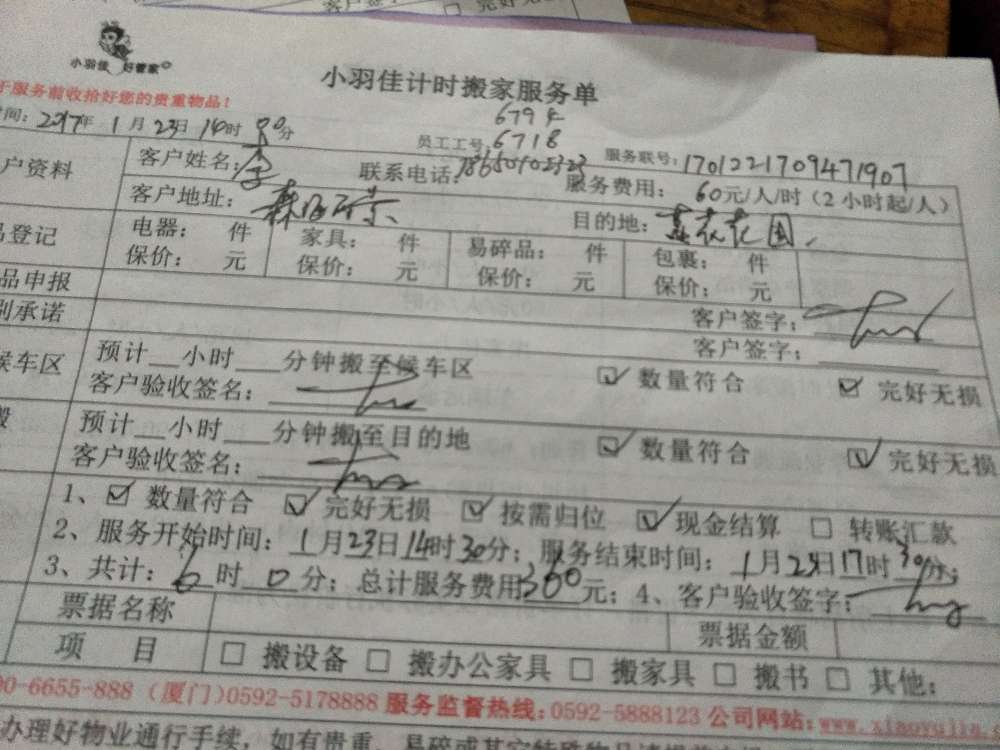 客户签字
完好无
小羽佳 好管家
小羽佳计时搬家服务单
于服务前收拾好您的贵重物品!
时间:2017年1月23日14时30分
6794
员工工号:6718
服务联号:1701221709471907
户资料 客户姓名:李 联系电话:18650902323 服务费用: 60元/人/时(2小时起/人)
客户地址: 目的地:
品登记 电器: 件 家具: 件 易碎品: 件 包裹: 件
保价: 元 保价: 元 保价: 元 保价: 元
品申报 客户签字:
别承诺 客户签字:
候车区 预计__小时___分钟搬至候车区 ☑数量符合 ☑完好无损
客户验收签名:
搬 预计__小时___分钟搬至目的地 ☑数量符合 ☑完好无损
客户验收签名:
1、☑数量符合 ☑完好无损 ☑按需归位 ☑现金结算 □转账汇款
2、服务开始时间:1月23日14时30分;服务结束时间:1月23日17时30分;
3、共计:6时0分;总计服务费用360元;4、客户验收签字:
票据名称 票据金额
项 目 □搬设备 □搬办公家具 □搬家具 □搬书 □其他:
00-6655-888(厦门)0592-5178888 服务监督热线:0592-5888123 公司网站:www.xiaoyujia.
办理好物业通行手续,如有贵重、易碎或其它特殊物品请提前